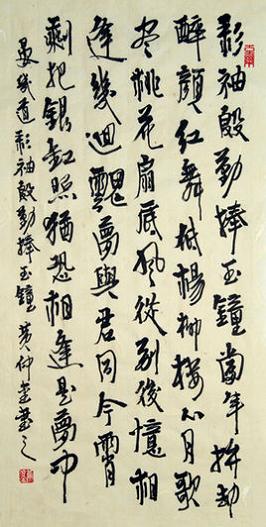 彩袖殷勤捧玉鐘當年拚却
醉顏紅舞低楊柳樓心月歌
尽桃花扇底風從别後憶相
逢幾迴魂夢與君同今宵
剩把銀缸照猶恐相逢是夢中
晏幾道彩袖殷勤捧玉鐘 黄仲書之